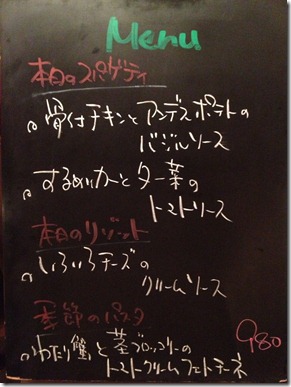 Menu
本日のスパゲティ
骨付チキンとアンデスポテトの
バジルソース
するめいかーとター菜の
トマトソース
本日のリゾット
いろいろチーズの
クリームソース
季節のパスタ
980
わたり蟹と茎ブロッコリーの
トマトクリームフェトチーネ